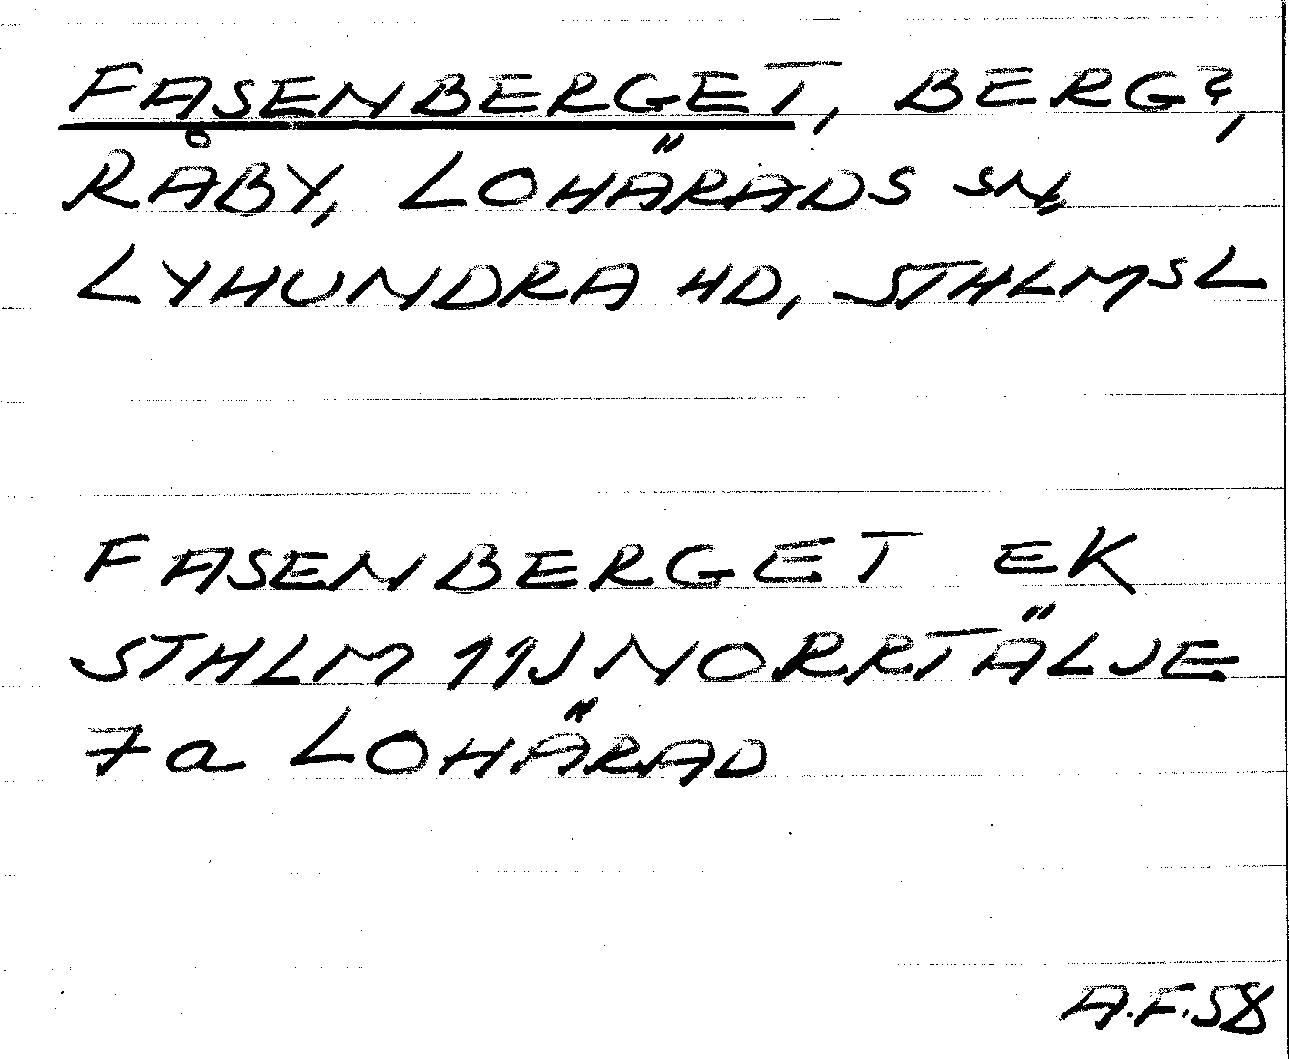 FASENBERGET, BERG?,
RÅBY, LOHÄRADS SN,
LYHUNDRA HD, STHLMSL
FASENBERGET EK
STHLM 11J NORRTÄLJE
7a LOHÄRAD
A.F.58